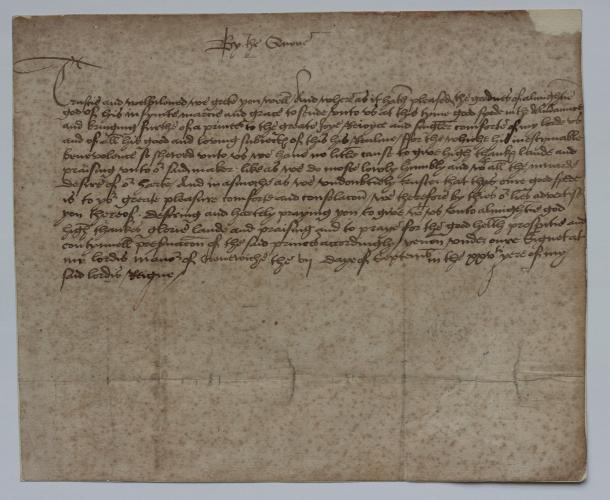 By the Quene
Trustie and welbiloved we grete you well And where as it hath pleased the goodnes of almightie
god of his infynite marcie and grace to sende unto us at this tyme good spede in the delyveraunce
and bringing furthe of a princes to the greate joye rejoyce and comforte of my lorde us
and of all his good and loving subjects of this his realme ffor the whiche his inestymable
benevolence so shewed unto us we have no litle cause to give high thankes laude and
praising unto or said maker like as we do most lowly humbly and wt all the inwarde
desire of or harte And in asmuche as we undoubtidly truste that this oure good spede
is to yor greate pleasure comforte and consolacion we therefore by thies or lres advertise
you thereof desiring and hartely praying you to give wt us unto almightie god
high thankes glorie laude and praising and to praye for the good helth prosperitie and
contynuell preservacion of the said princes accordingly yeven under oure signet at
my lordis manor of Grenewiche the vij daye of Septembr in the xxvth yere of my
said lordis reigne